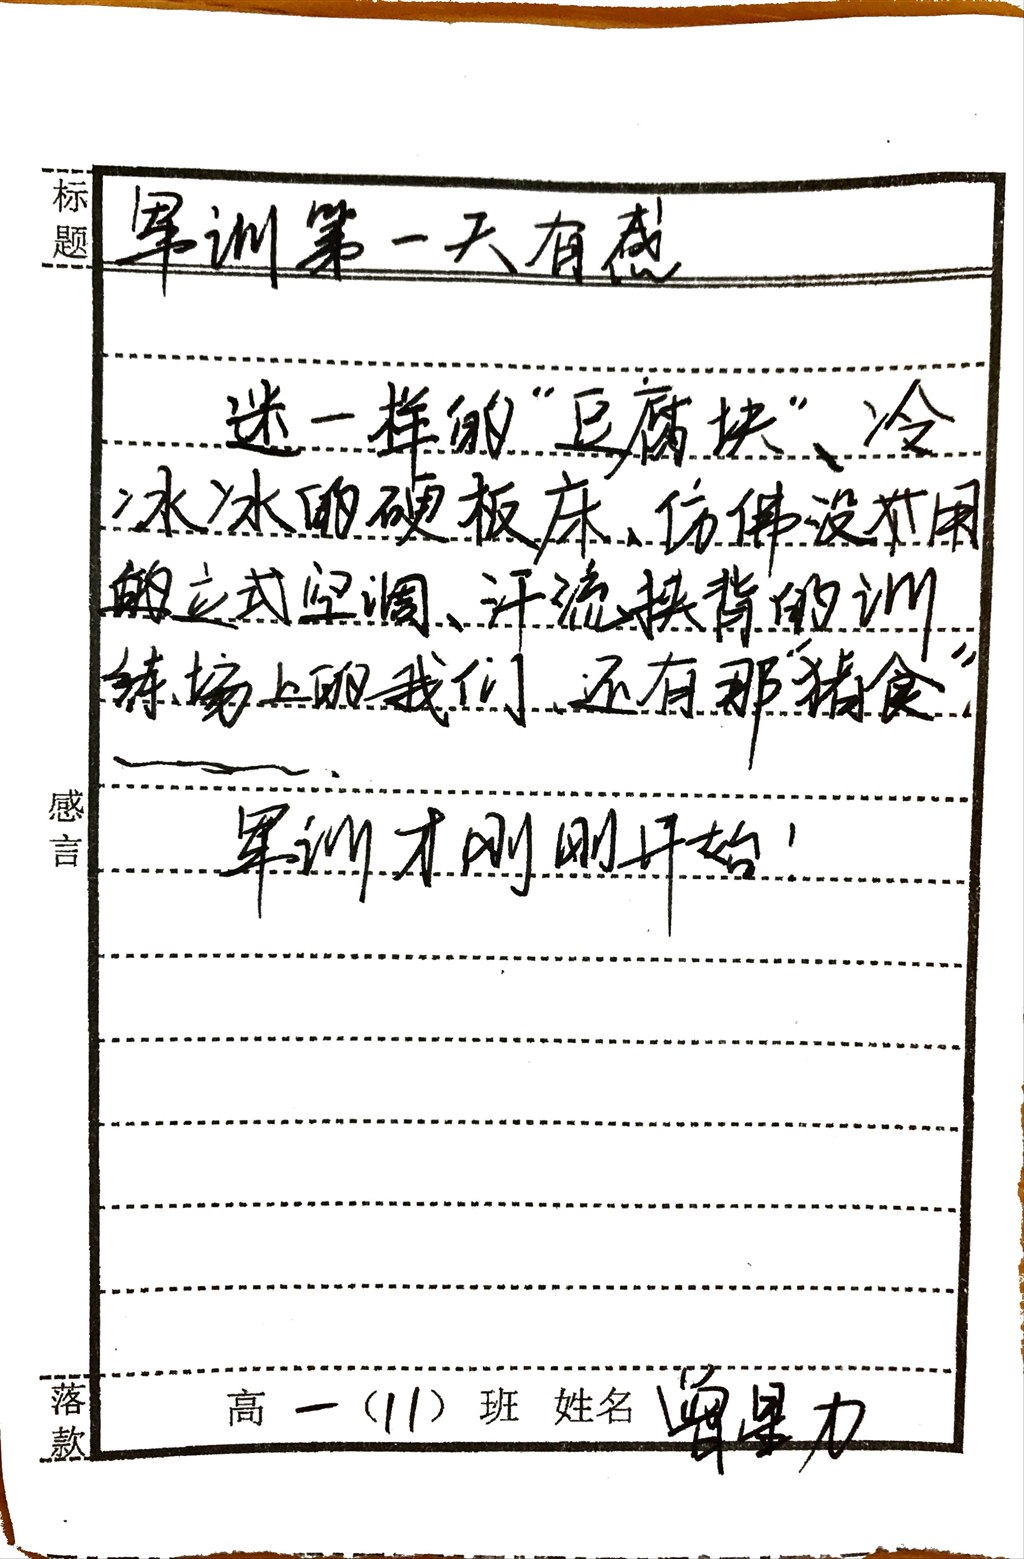 标题
军训第一天有感
迷一样的“豆腐块”、冷
冰冰的硬板床、仿佛没作用
的立式空调、汗流挟背的训
练场上的我们、还有那“猪食”
——.
感言
军训才刚刚开始!
落款
高一(11)班 姓名 曾星力